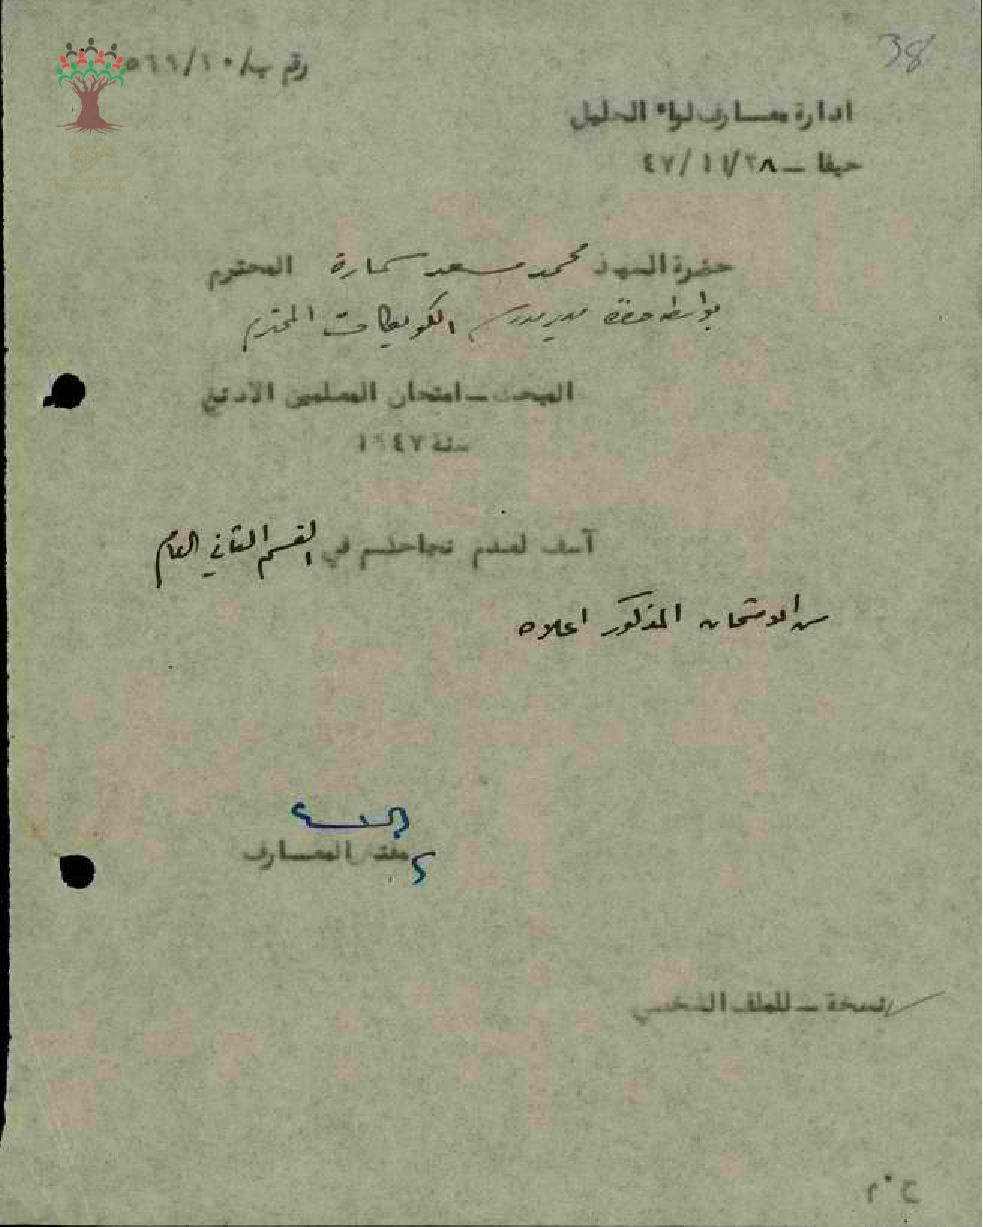 38
رقم ب/١٠/٥٦٦
ادارة معارف لواء الجليل
حيفا – ٤٧/١١/٢٨
حضرة السيد محمد سعد سمارة المحترم
بواسطة حضرة مدير مدرسة الكويكات المحترم
المبحث – امتحان المعلمين الادنى
سنة ١٩٤٧
آسف لعدم نجاحكم في القسم الثاني العام
من الامتحان المذكور اعلاه
مفتش المعارف
نسخة – للملف الشخصي
ح٠م